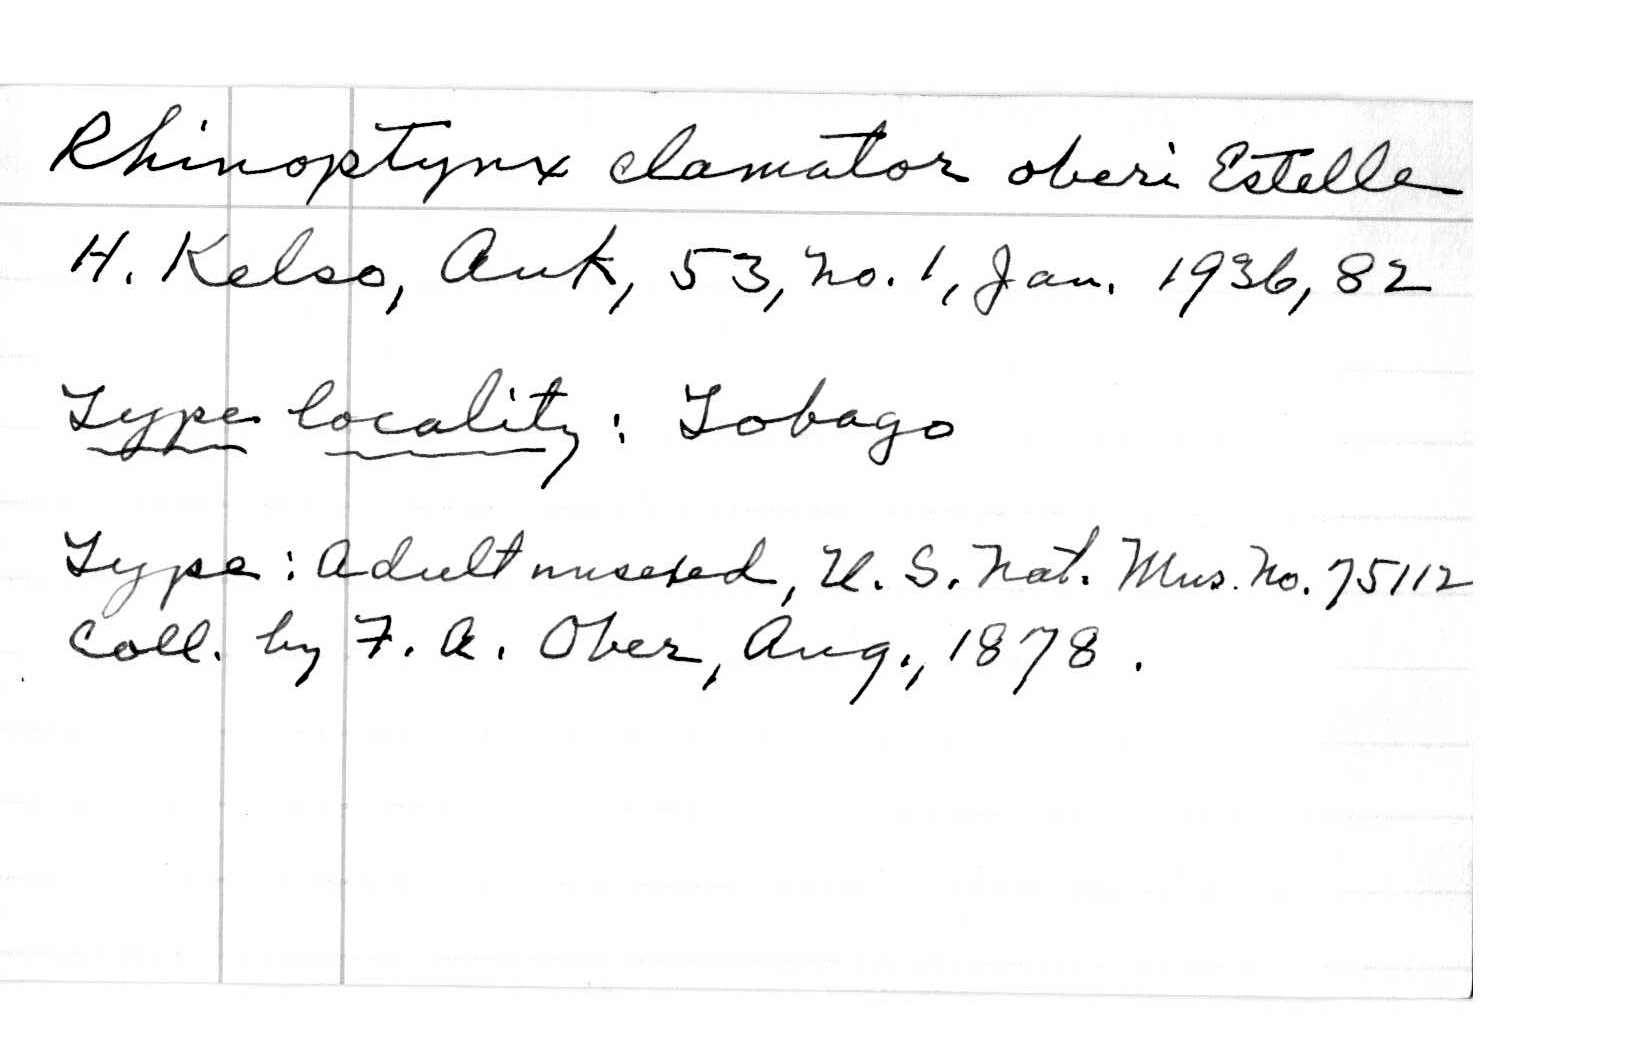 Rhinoptynx clamator oberi Estelle
H. Kelso, Auk, 53, no. 1, Jan. 1936, 82
Type locality: Tobago
Type: Adult unsexed, U.S. Nat. Mus. No. 75112
Coll. by F. A. Ober, Aug., 1878.